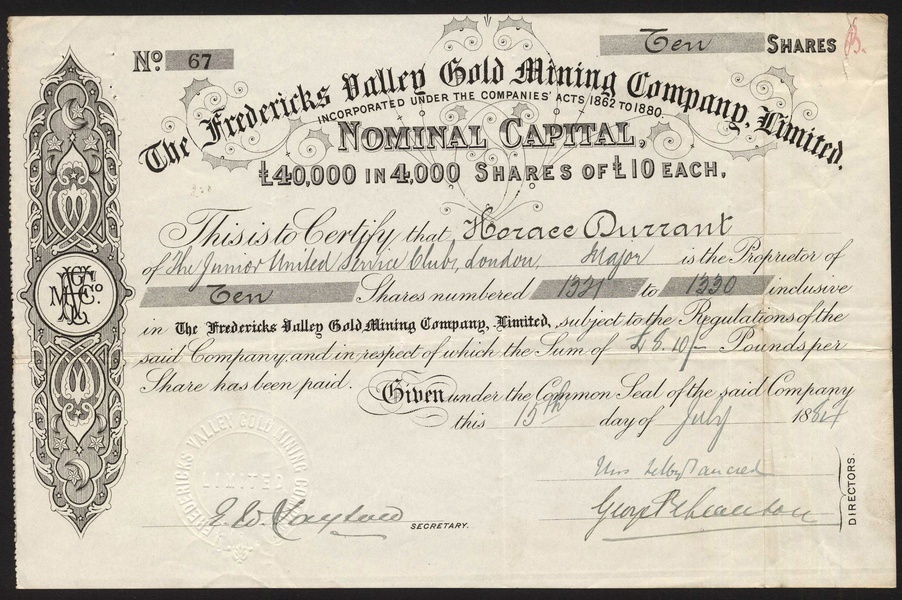 No. 67
Ten SHARES
The Fredericks Valley Gold Mining Company, Limited.
INCORPORATED UNDER THE COMPANIES' ACTS, 1862 TO 1880.
NOMINAL CAPITAL,
£40,000 IN 4,000 SHARES OF £10 EACH.
This is to Certify that Horace Durrant
of The Junior United Service Club, London, Major is the Proprietor of
Ten Shares numbered 1321 to 1330 inclusive
in The Fredericks Valley Gold Mining Company, Limited, subject to the Regulations of the
said Company, and in respect of which the Sum of £5.10/- Pounds per
Share has been paid. Given under the Common Seal of the said Company
this 15th day of July 1884
FREDERICKS VALLEY GOLD MINING CO
LIMITED
SECRETARY.
DIRECTORS.